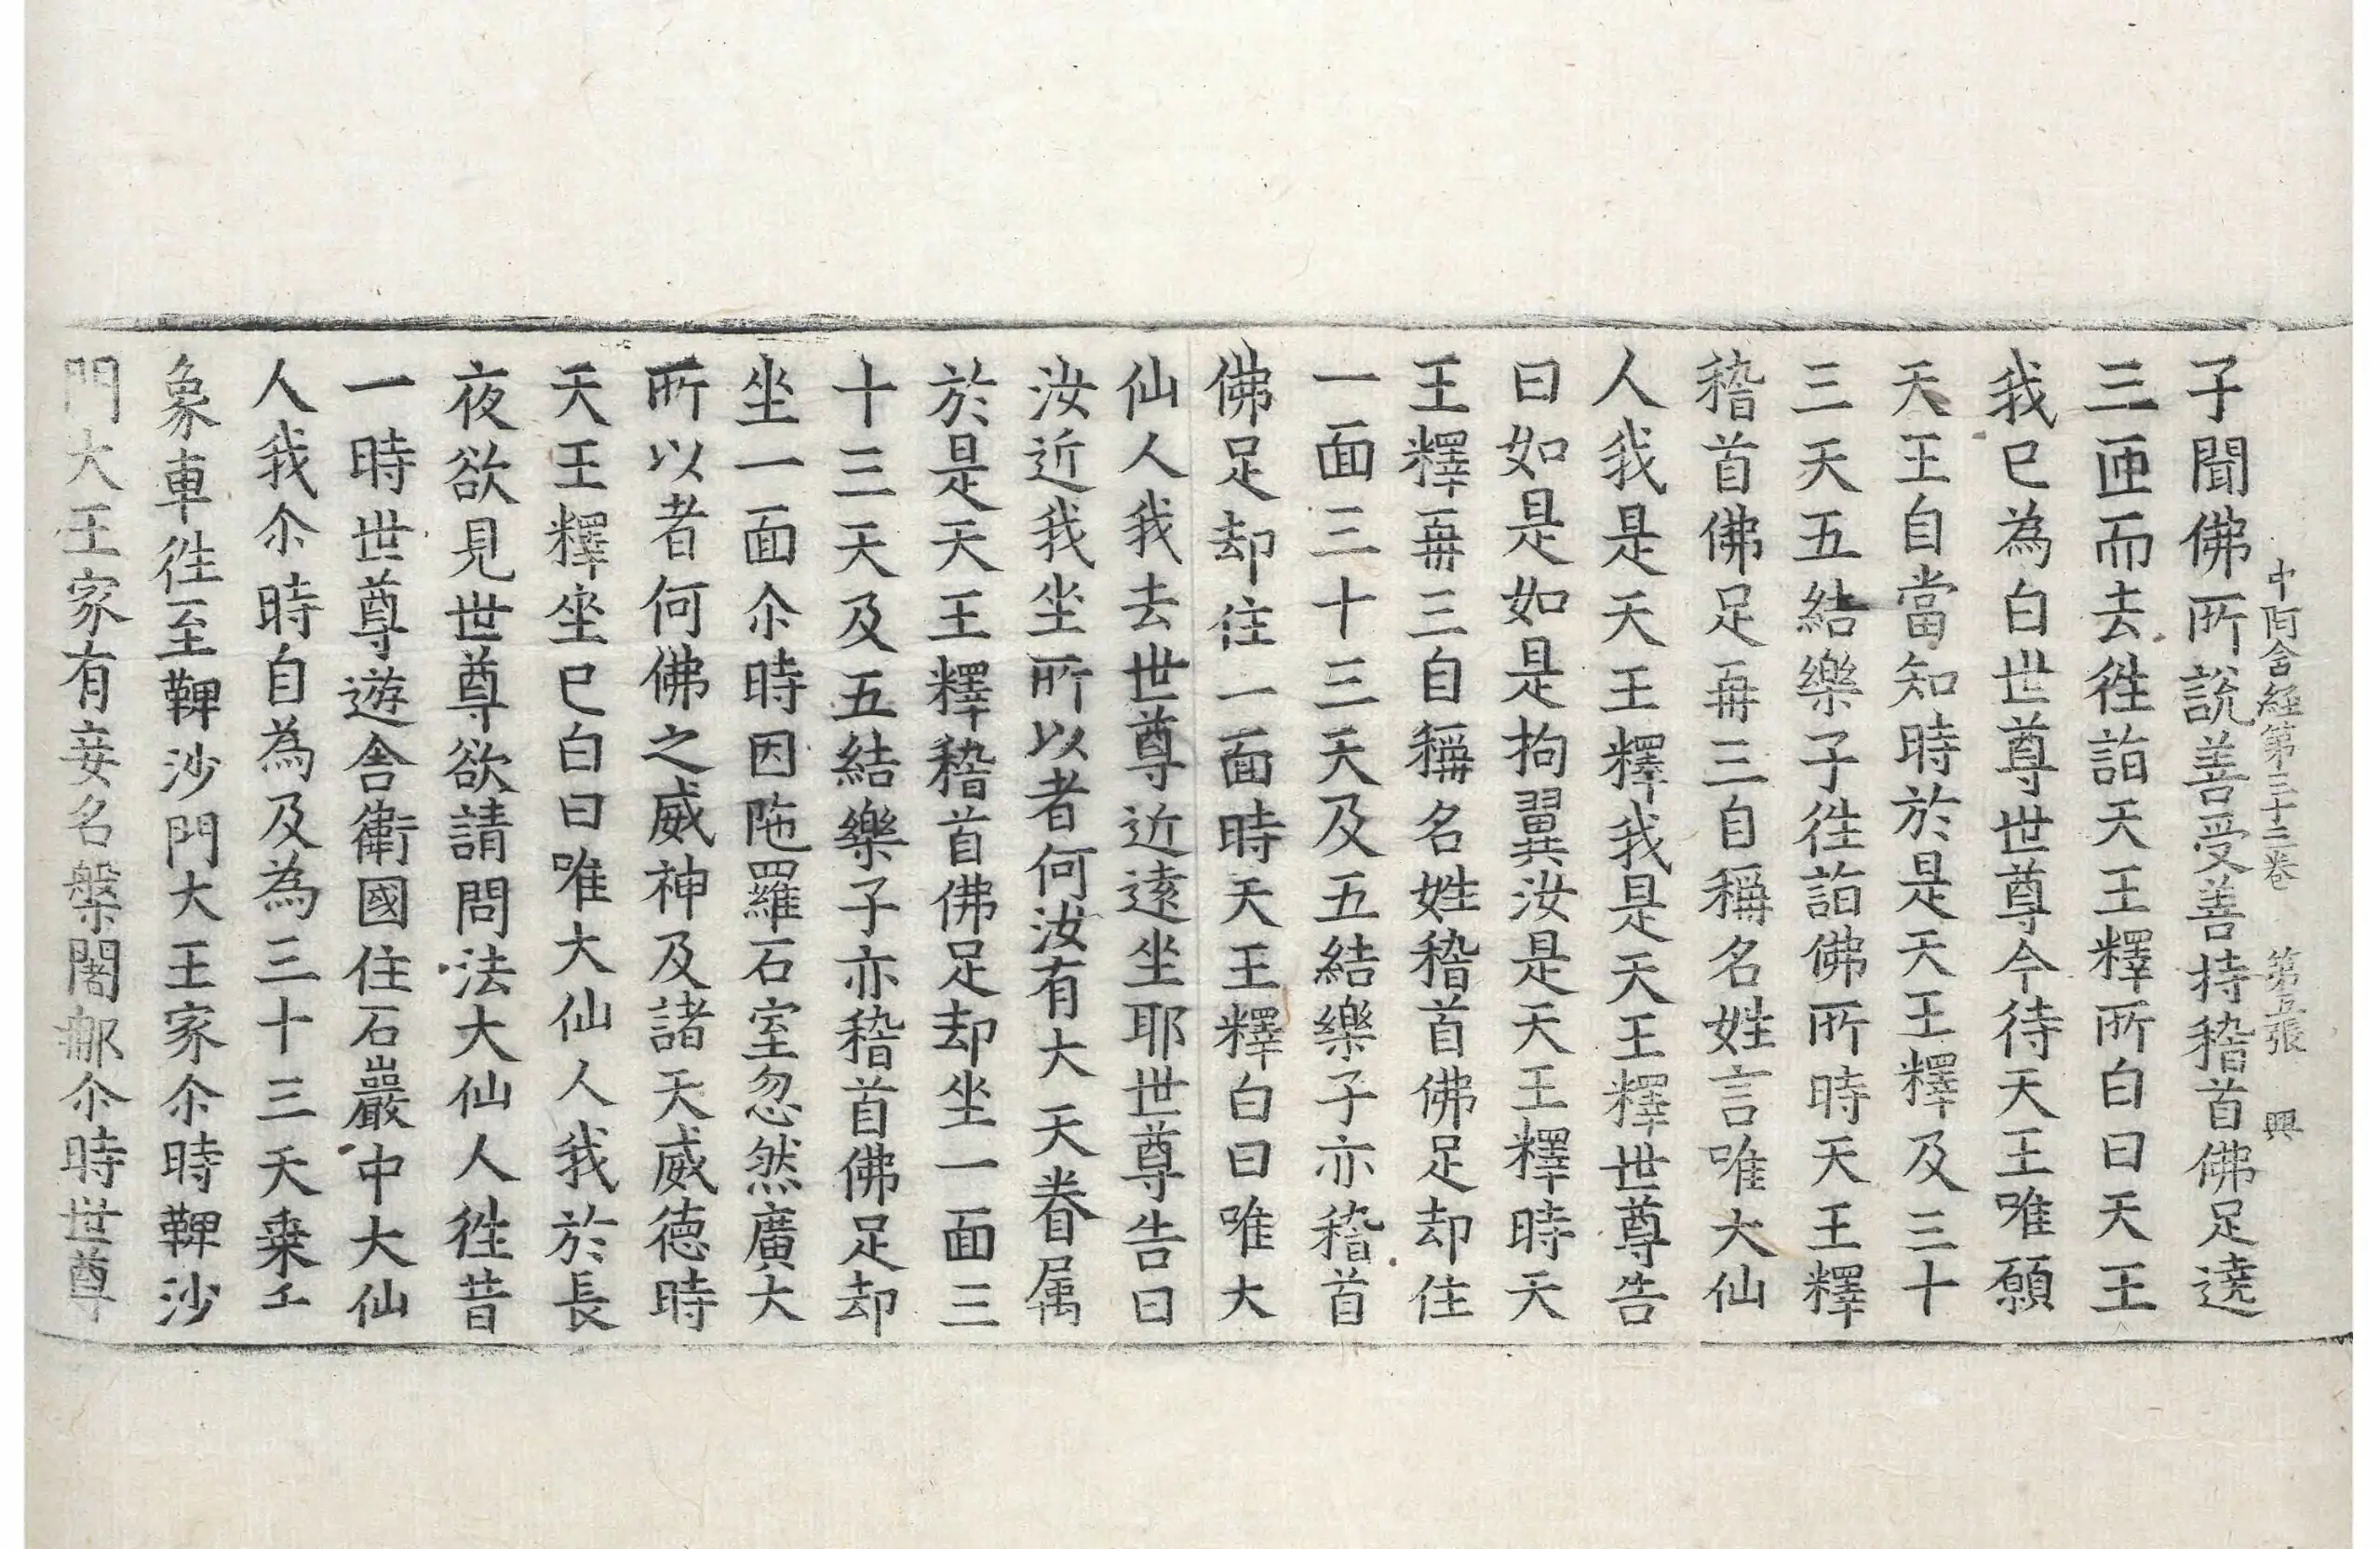 中阿含經第三十三卷　第五張　興
子聞佛所說善受善持稽首佛足遶
三匝而去徃詣天王釋所白曰天王
我已為白世尊世尊今待天王唯願
天王自當知時於是天王釋及三十
三天五結樂子徃詣佛所時天王釋
稽首佛足再三自稱名姓言唯大仙
人我是天王釋我是天王釋世尊告
曰如是如是拘翼汝是天王釋時天
王釋再三自稱名姓稽首佛足却住
一面三十三天及五結樂子亦稽首
佛足却住一面時天王釋白曰唯大
仙人我去世尊近遠坐耶世尊告曰
汝近我坐所以者何汝有大天眷属
於是天王釋稽首佛足却坐一面三
十三天及五結樂子亦稽首佛足却
坐一面尒時因陁羅石室忽然廣大
所以者何佛之威神及諸天威德時
天王釋坐已白曰唯大仙人我於長
夜欲見世尊欲請問法大仙人徃昔
一時世尊遊舍衛國住石巖中大仙
人我尒時自為及為三十三天乗千
象車徃至鞞沙門大王家尒時鞞沙
門大王家有妾名槃闍那尒時世尊